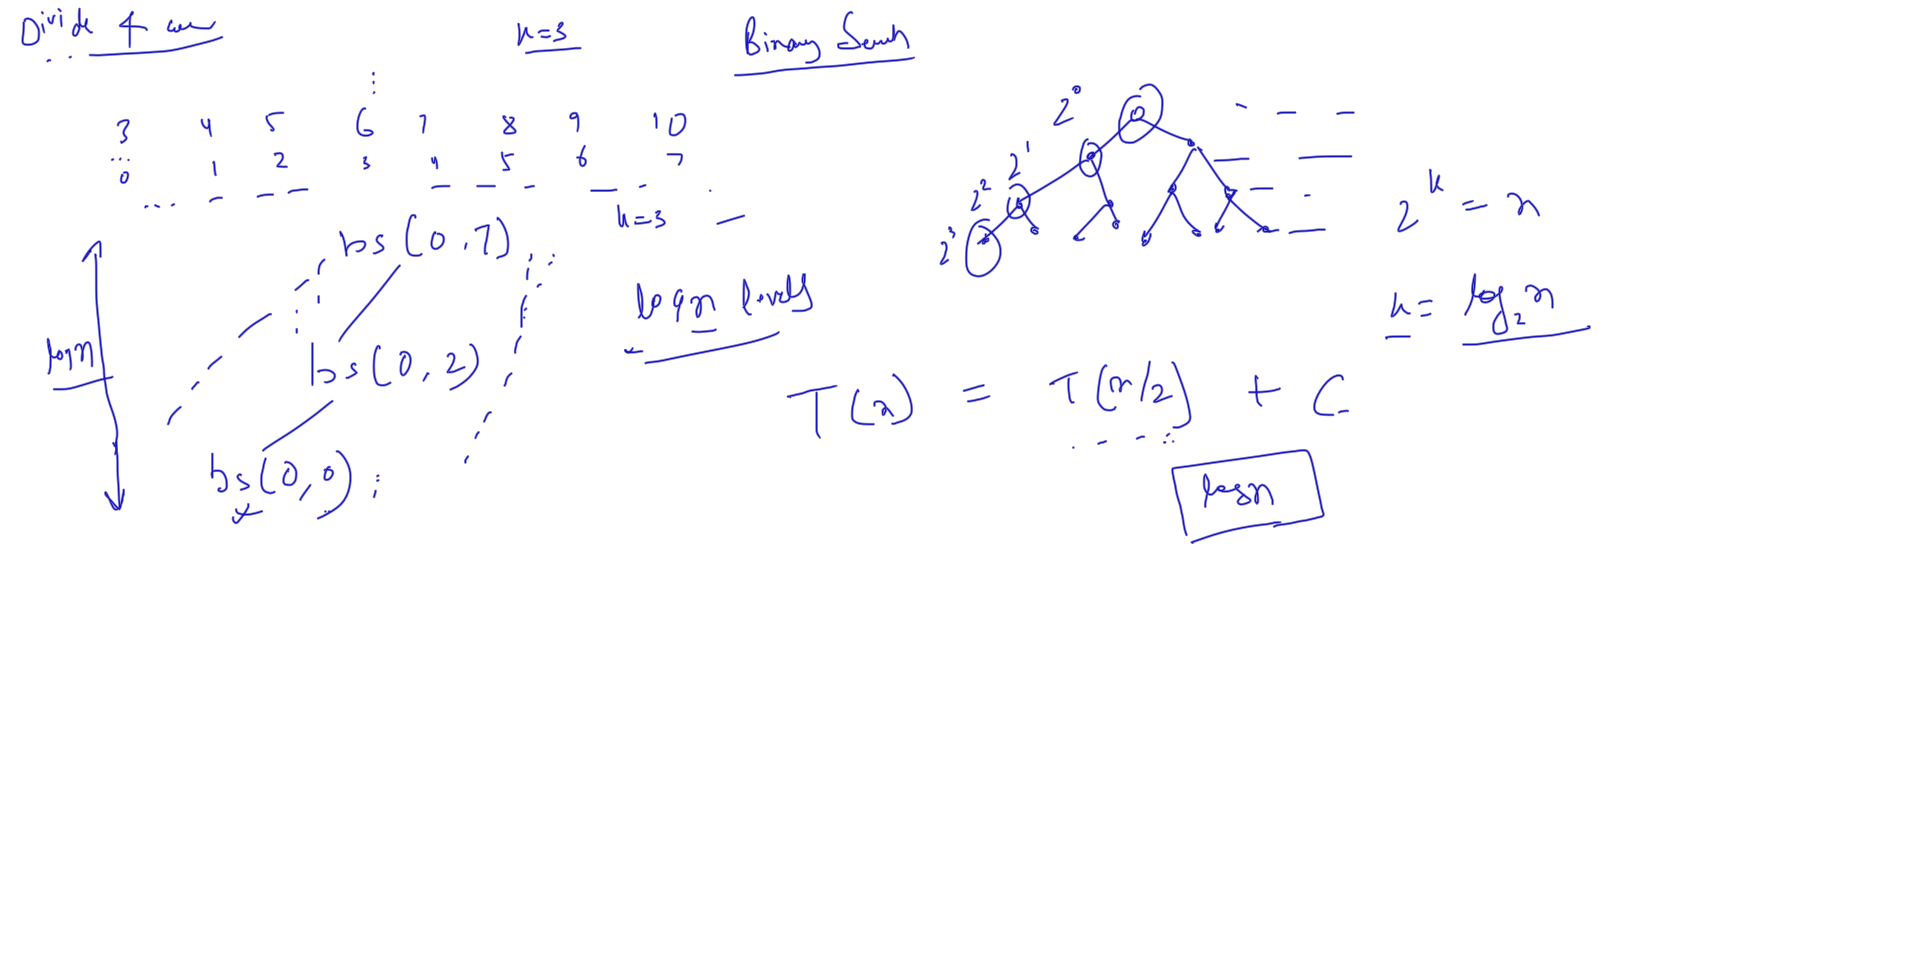 Divide & con
k=3
Binary Search
3 4 5 6 7 8 9 10
0 1 2 3 4 5 6 7
k=3
bs(0,7)
bs(0,2)
bs(0,0);
logn
logn levels
2^0
2^1
2^2
2^3
2^k = n
k = log_2 n
T(n) = T(n/2) + C
logn